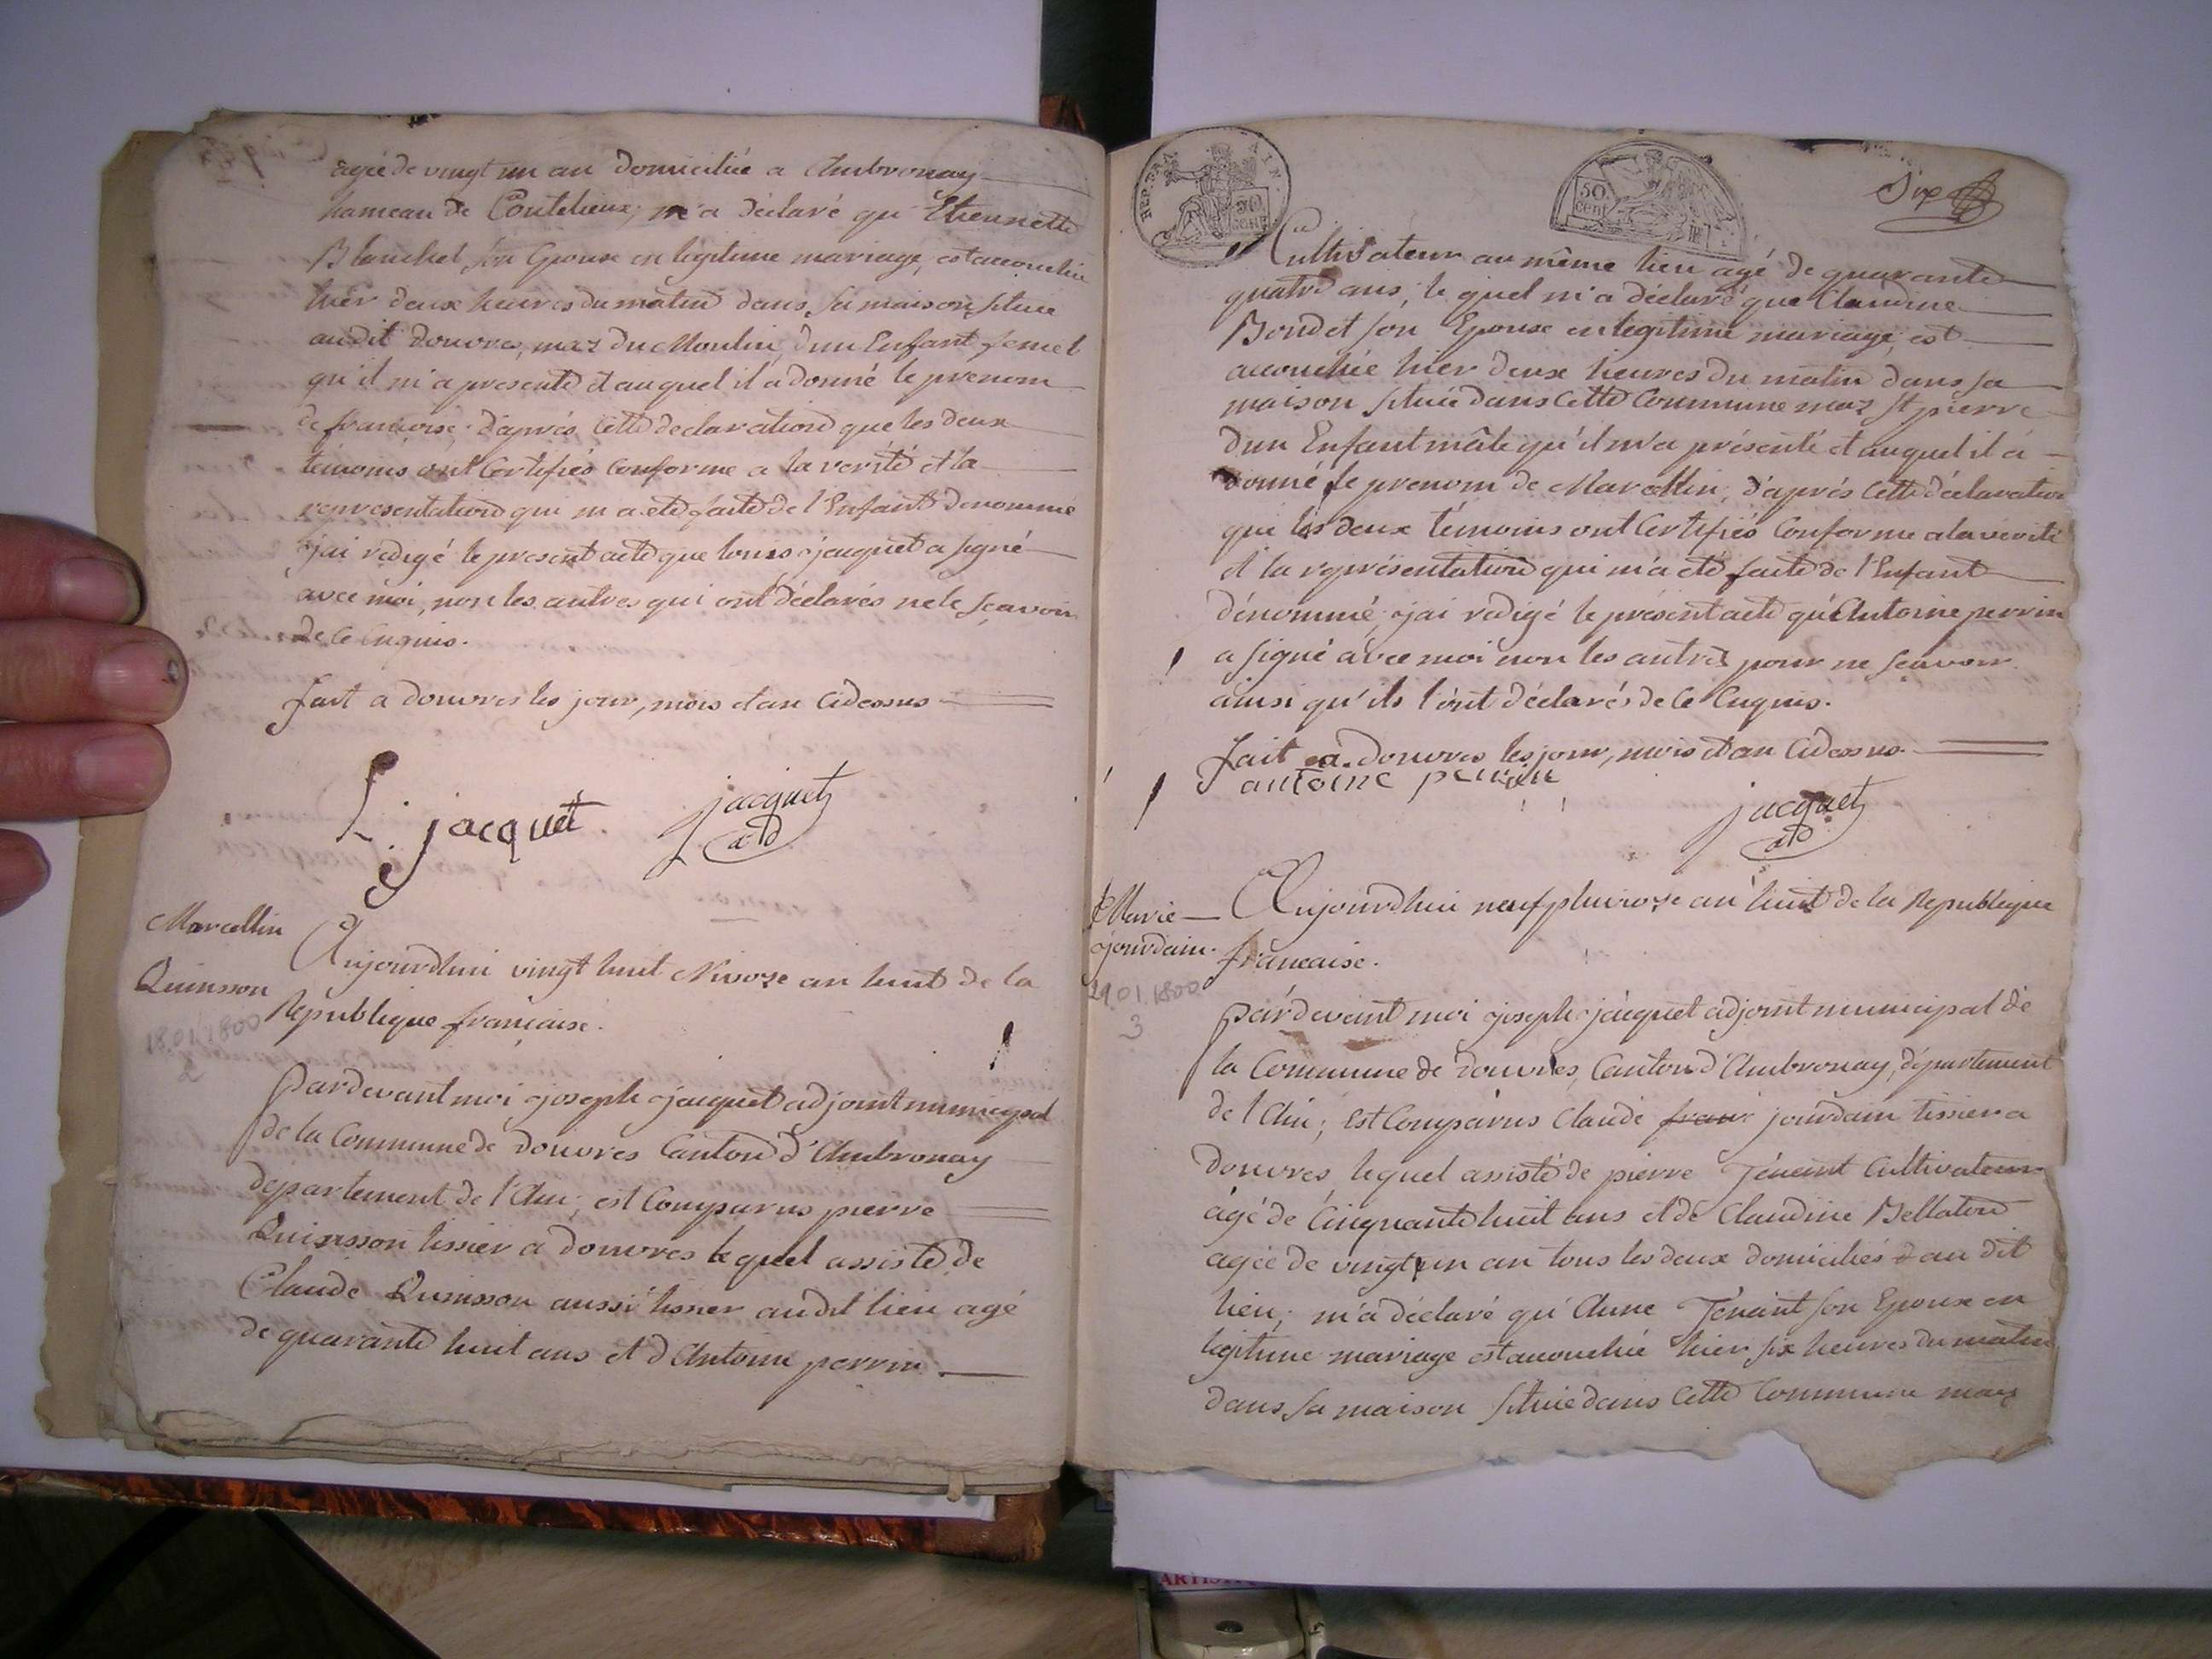 agée de vingt un an domiciliée a Ambronay
hameau de Coutelieux, m'a déclaré qu'Etiennette
Blanchet son Epouse en legitime mariage, est accouchée
hier deux heures du matin dans sa maison située
audit douvres, maz du Moulin, d'un Enfant femel
qu'il m'a presenté et auquel il a donné le prenom
de francoise. d'après cette declaration que les deux
témoins ont Certifiés Conforme a la verité et la
representation qui m'a eté faite de l'Enfant denommé
j'ai redigé le present acte que louis jacquet a signé
avec moi, non les autres qui ont déclarés ne le sçavoir
de ce Enquis.
fait a douvres les jour, mois et an Cidessus
L. jacquet jacquet
ad
Marcellin
Quinsson
18.01.1800
2
Aujourdhui vingt huit Nivoze an huit de la
Republique française.
Pardevant moi joseph jacquet adjoint municipal
de la Commune de Douvres Canton d'Ambronay
département de l'Ain, est Comparus pierre
Quinsson tissier a douvres lequel assisté de
Claude Quinsson aussi tissier audit lieu agé
de quarante huit ans et d'Antoine perrin
REP. FRA.
50
cent
50
cent
Six
Cultivateur au même lieu agé de quarante
quatre ans; lequel m'a déclaré que Claudine
Bondet son Epouse en legitime mariage, est
accouchée hier deux heures du matin dans sa
maison située dans cette Commune maz St pierre
d'un Enfant mâle qu'il m'a présenté et auquel il a
donné le prenom de Marcellin, d'après cette déclaration
que les deux témoins ont Certifiés Conforme a la verité
et la représentation qui m'a eté faite de l'Enfant
dénommé, j'ai redigé le présent acte qu'Antoine perrin
a signé avec moi non les autres pour ne sçavoir
ainsi qu'ils l'ont déclarés de ce Enquis.
fait a douvres les jour, mois et an Cidessus
antoine perrin
jacquet
ad
Marie
jourdain.
29.01.1800
3
Aujourdhui neuf pluviose an huit de la Republique
francaise.
Pardevant moi joseph jacquet adjoint municipal de
la Commune de douvres, Canton d'Ambronay, département
de l'Ain; est Comparus Claude jourdain tissier a
douvres, lequel assisté de pierre Ténaint Cultivateur
âgé de Cinquante huit ans et de Claudine Bellaton
agée de vingt un an tous les deux domiciliés au dit
lieu; m'a déclaré qu'Anne Ténaint son Epouse en
legitime mariage est accouchée hier six heures du matin
dans sa maison située dans cette Commune maz